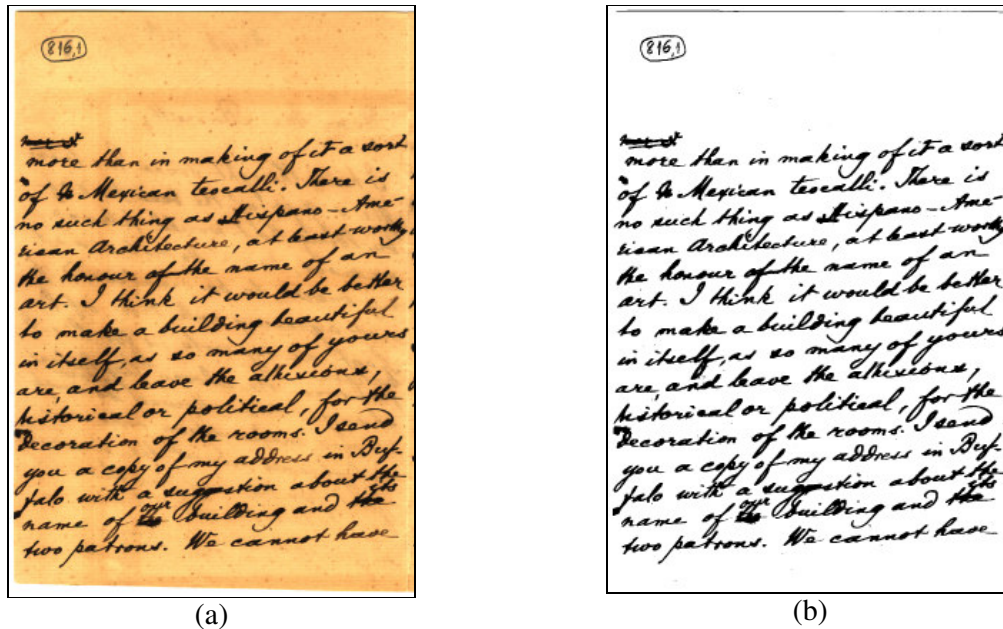 816,1
more than in making of it a sort
of a Mexican teocalli. There is
no such thing as Hispano-Ame-
rican Architecture, at least worthy
the honour of the name of an
art. I think it would be better
to make a building beautiful
in itself, as so many of yours
are, and leave the allusions,
historical or political, for the
decoration of the rooms. I send
you a copy of my address in Buf-
falo with a suggestion about the
name of our building and its
two patrons. We cannot have
(a)
816,1
more than in making of it a sort
of a Mexican teocalli. There is
no such thing as Hispano-Ame-
rican Architecture, at least worthy
the honour of the name of an
art. I think it would be better
to make a building beautiful
in itself, as so many of yours
are, and leave the allusions,
historical or political, for the
decoration of the rooms. I send
you a copy of my address in Buf-
falo with a suggestion about the
name of our building and its
two patrons. We cannot have
(b)